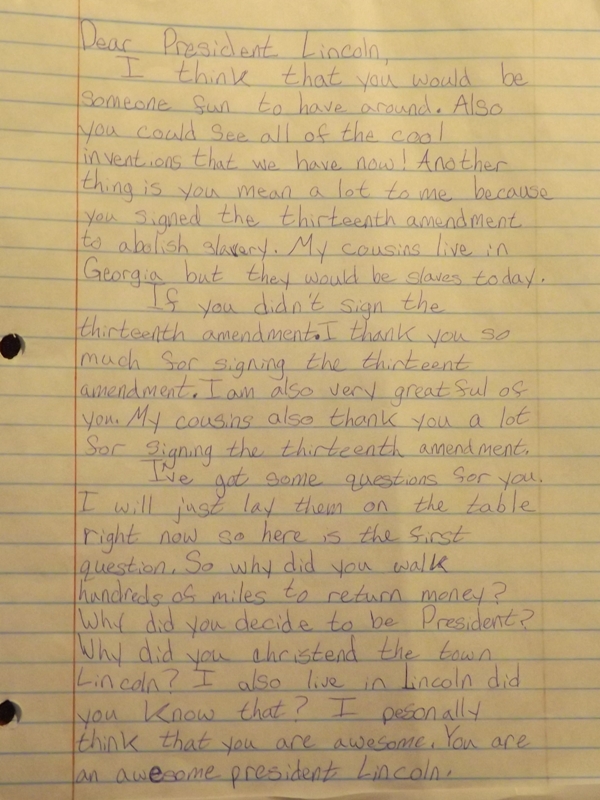 Dear President Lincoln,
I think that you would be
someone fun to have around. Also
you could see all of the cool
inventions that we have now! Another
thing is you mean a lot to me because
you signed the thirteenth amendment
to abolish slavery. My cousins live in
Georgia but they would be slaves today.
If you didn't sign the
thirteenth amendment. I thank you so
much for signing the thirteent
amendment. I am also very greatful of
you. My cousins also thank you a lot
for signing the thirteenth amendment.
I've got some questions for you.
I will just lay them on the table
right now so here is the first
question. So why did you walk
hundreds of miles to return money?
Why did you decide to be President?
Why did you christend the town
Lincoln? I also live in Lincoln did
you know that? I pesonally
think that you are awesome. You are
an awesome president Lincoln.